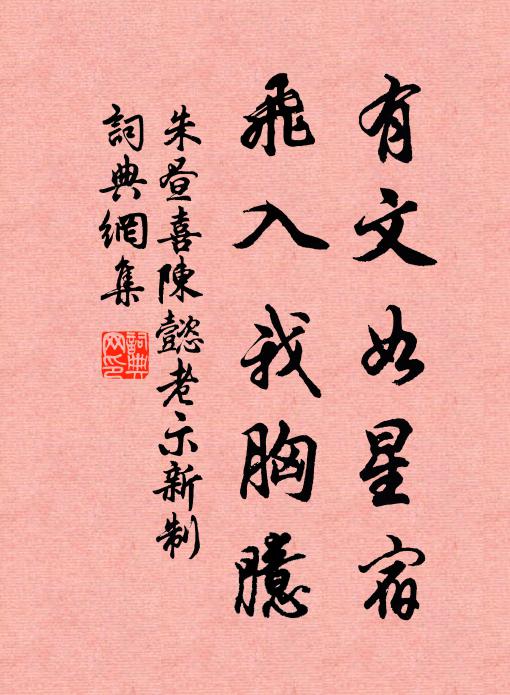 有文如星宿
飛入我胸臆
朱晝喜陳懿老示新制
詞典網集
詞典網印